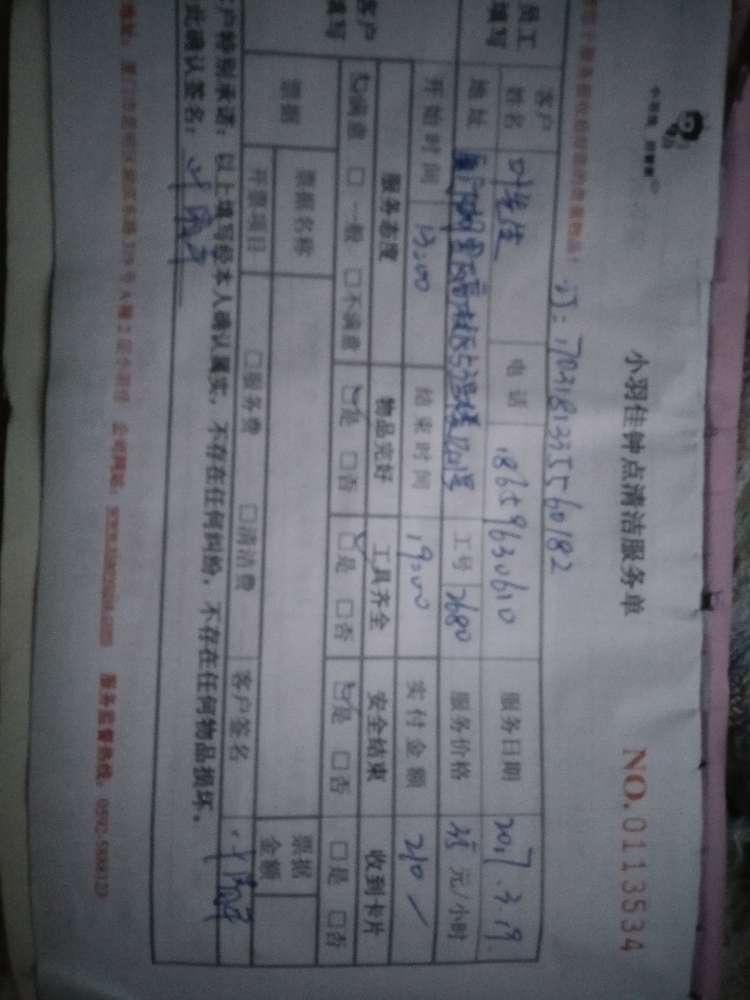 小羽佳钟点清洁服务单
NO.0113534
订：1703181335560182
员工填写
客户姓名 叶先生 电话 18659630610 服务日期 2017.3.19.
地址 工号 2680 服务价格 35 元/小时
开始时间 13:00 结束时间 19:00 实付金额 210
客户填写
服务态度 物品完好 工具齐全 安全结束 收到卡片
☑满意 □一般 □不满意 ☑是 □否 ☑是 □否 ☑是 □否 □是 □否
票据 票据名称 票据金额
开票项目 □服务费 □清洁费 客户签名
客户特别承诺：以上填写经本人确认属实，不存在任何纠纷，不存在任何物品损坏。
此确认签名：
服务监督热线：